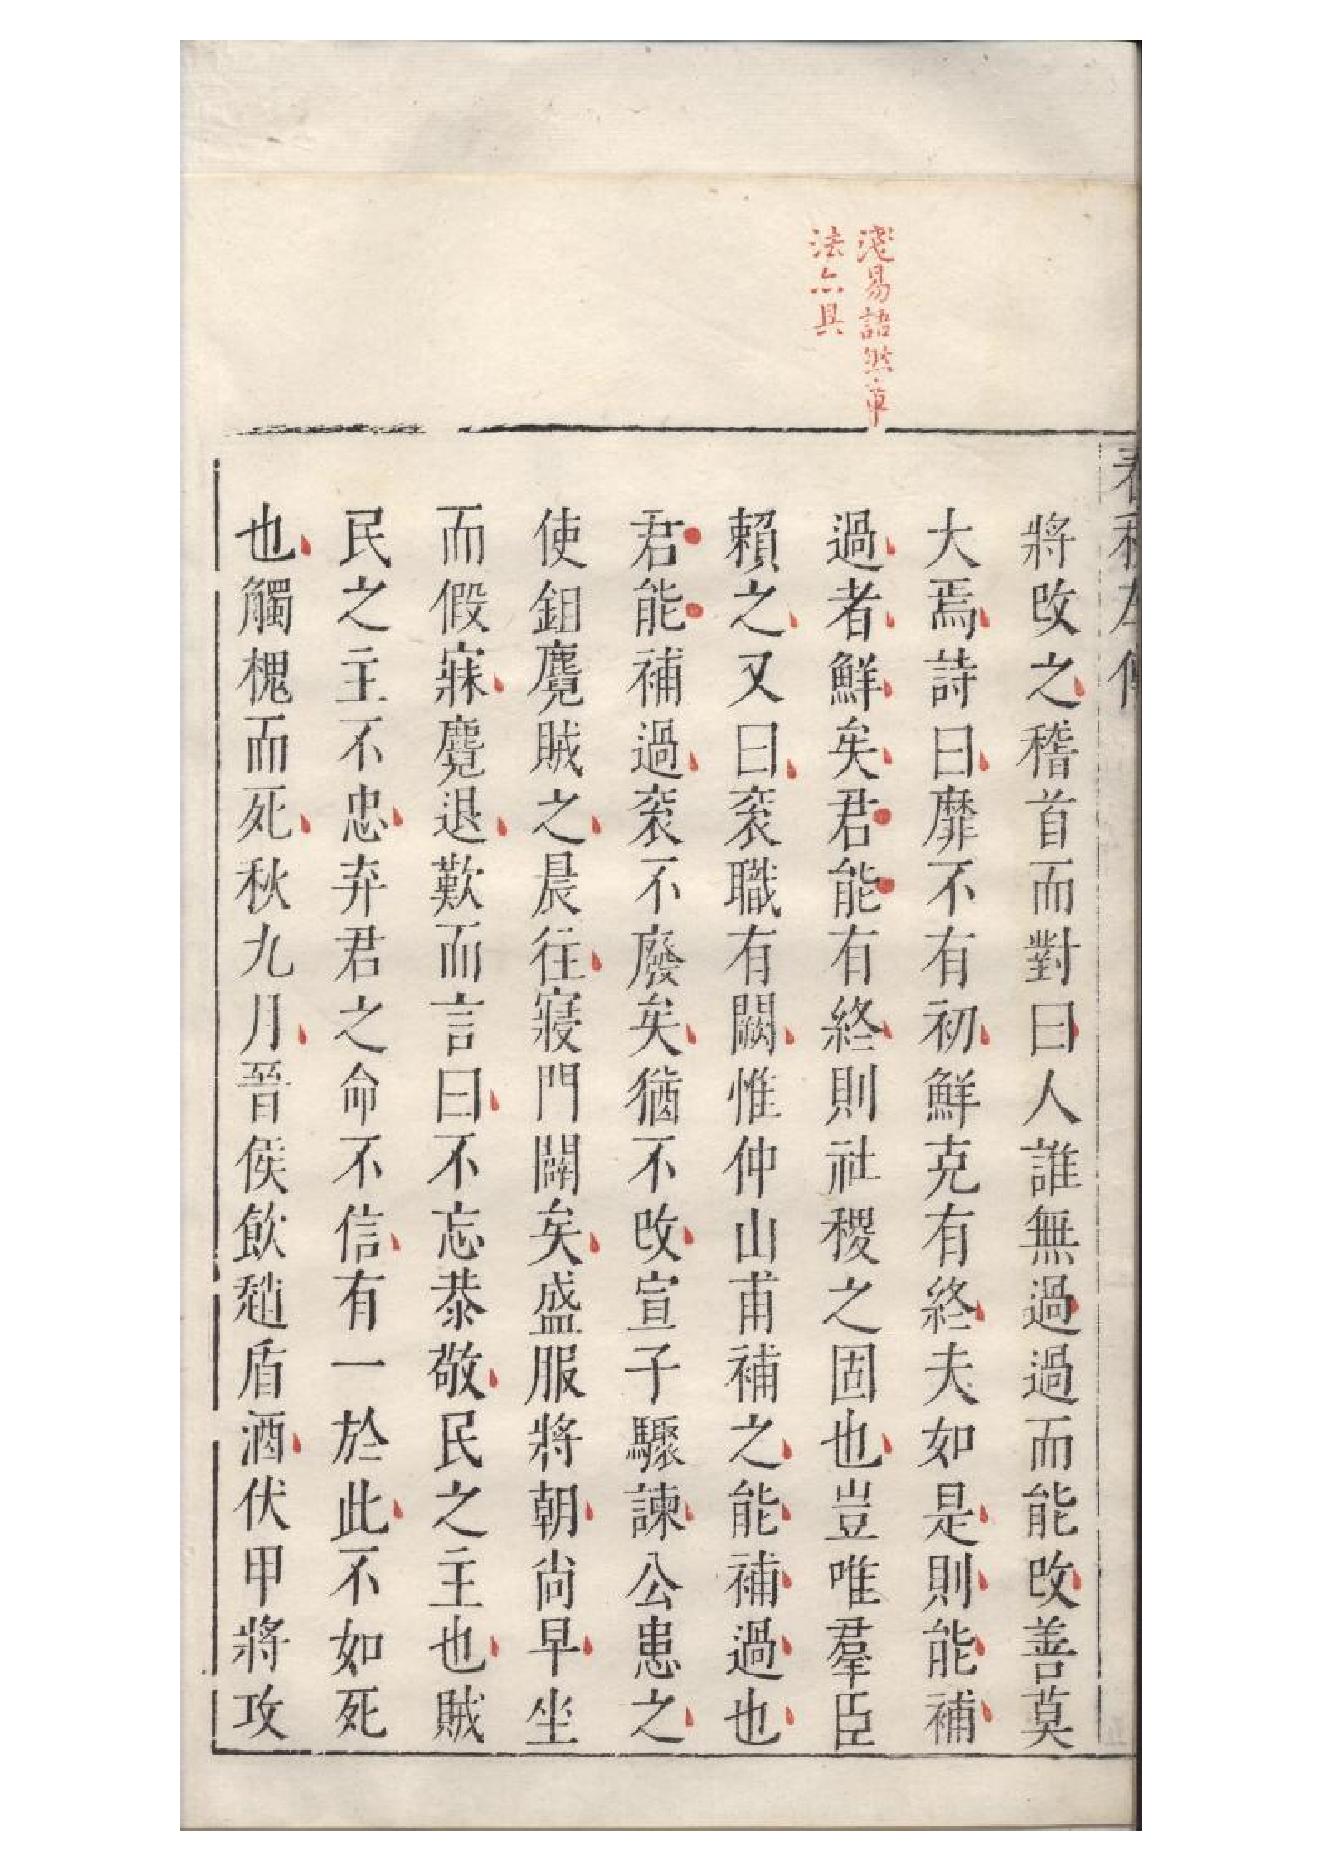 淺易語然章
法亦具
春秋左傳
將改之稽首而對曰人誰無過過而能改善莫
大焉詩曰靡不有初鮮克有終夫如是則能補
過者鮮矣君能有終則社稷之固也豈唯羣臣
賴之又曰袞職有闕惟仲山甫補之能補過也
君能補過袞不廢矣猶不改宣子驟諫公患之
使鉏麑賊之晨往寢門闢矣盛服將朝尚早坐
而假寐麑退歎而言曰不忘恭敬民之主也賊
民之主不忠弃君之命不信有一於此不如死
也觸槐而死秋九月晉侯飲趙盾酒伏甲將攻